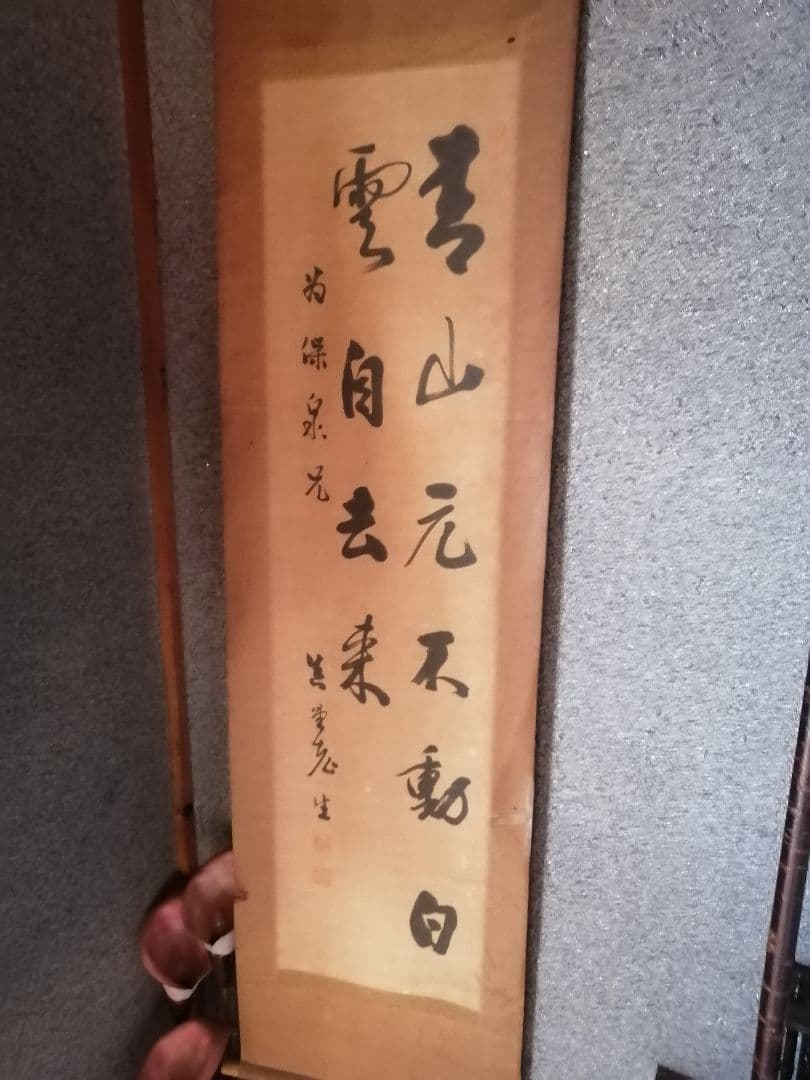 青山元不動白
雲自去来
为保泉兄
堂老生